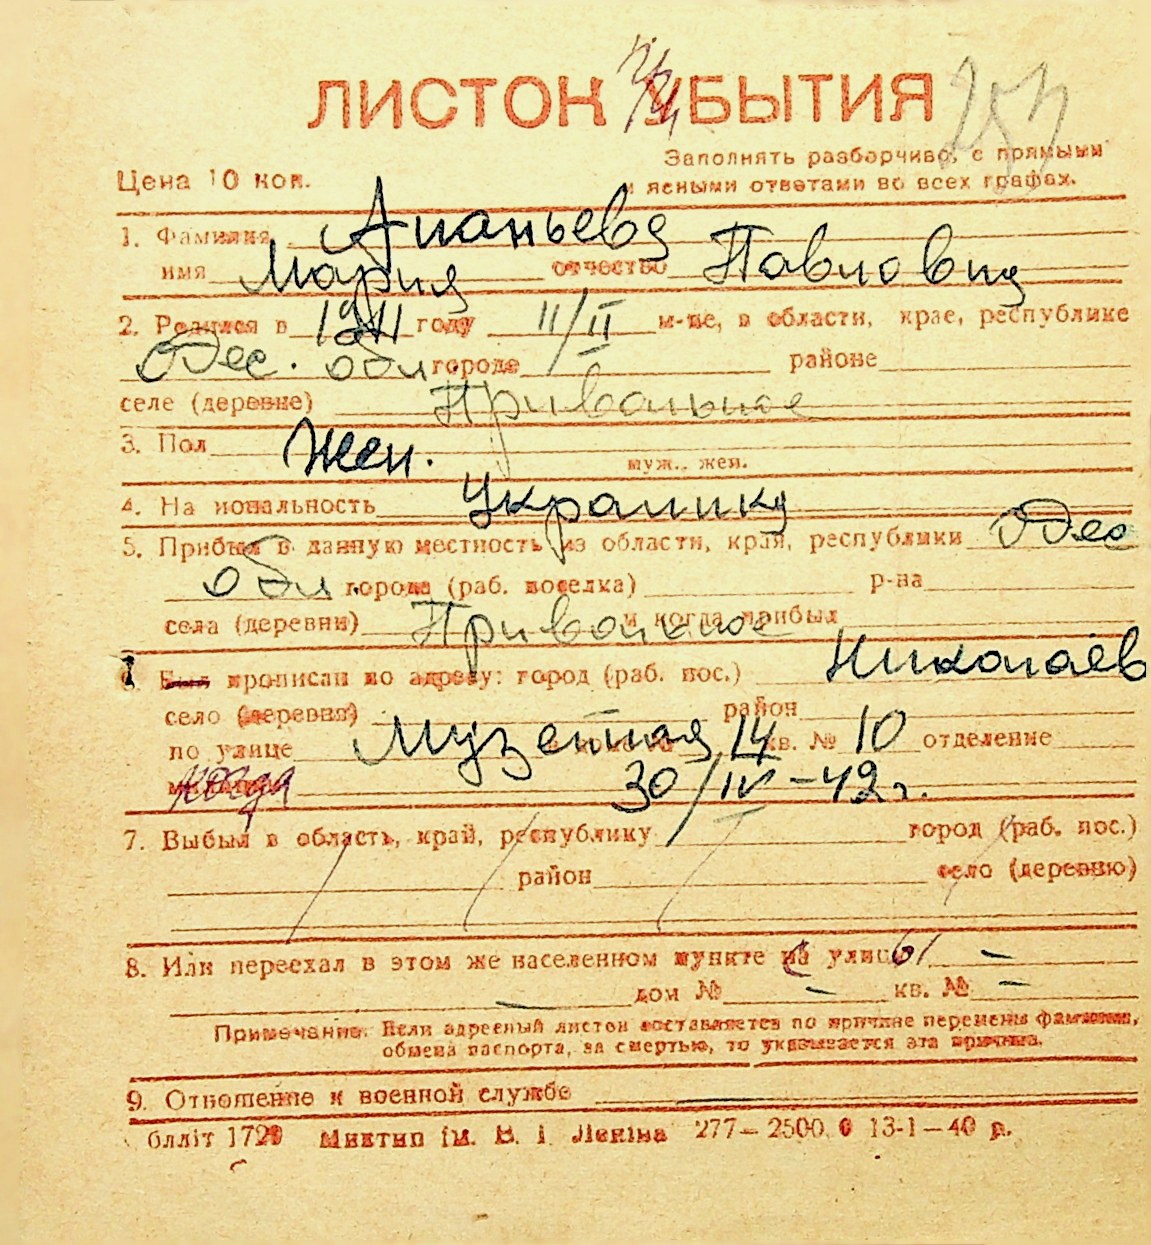 ЛИСТОК УБЫТИЯ
Заполнять разборчиво, с прямыми
Цена 10 коп.
и ясными ответами во всех графах.
1. Фамилия Ананьева
имя Мария отчество Павловна
2. Родился в 1911 году 11/II м-це, в области, крае, республике
Одес. обл городе районе
селе (деревне) Привольное
3. Пол Жен.
муж., жен.
4. Национальность Украинка
5. Прибыл в данную местность из области, края, республики Одес
обл. города (раб. поселка) р-на
села (деревни) Привольное и когда прибыл
Был прописан по адресу: город (раб. пос.) Николаев
село (деревня) район
по улице Музейная 14 кв. № 10 отделение
когда 30/IV-42 г.
7. Выбыл в область, край, республику город (раб. пос.)
район село (деревню)
8. Или переехал в этом же населенном пункте с улицы –
– дом № – кв. № –
Примечание. Если адресный листок составляется по причине перемены фамилии,
обмена паспорта, за смертью, то указывается эта причина.
9. Отношение к военной службе
блліт 1729 Миктип ім. В. І. Леніна 277–2500. 13-1–40 р.